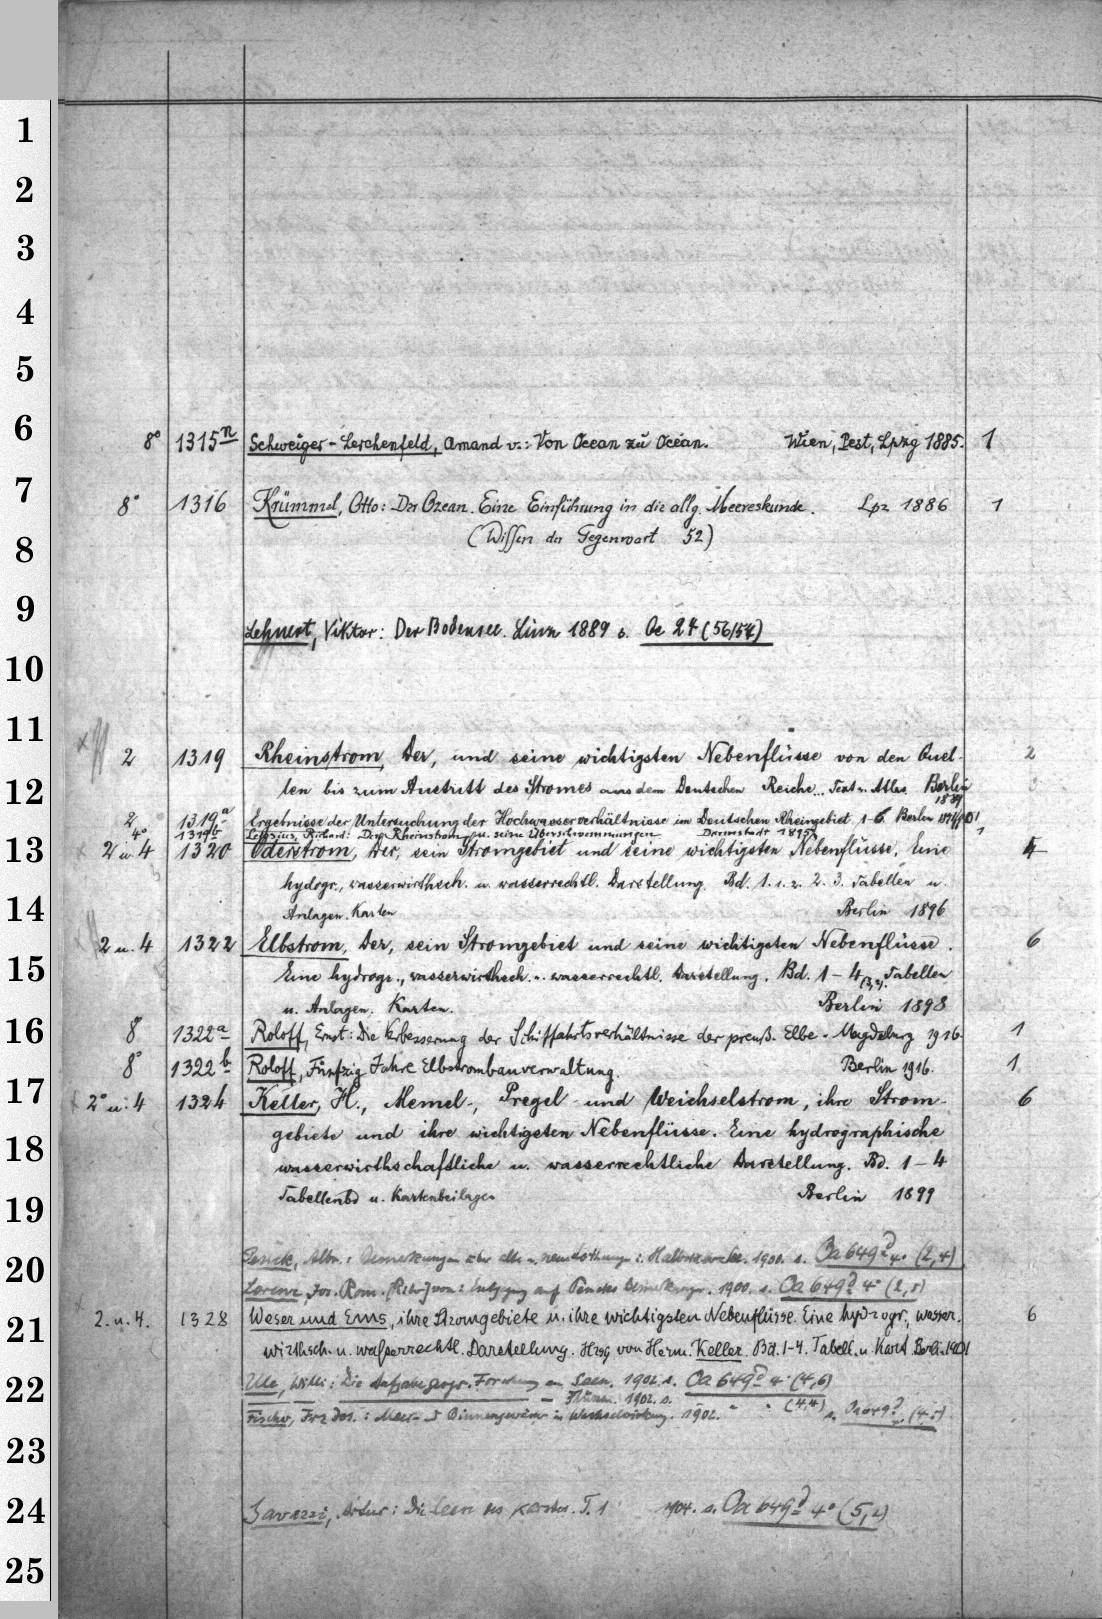 1
2
3
4
5
6
8° 1315n Schweiger-Lerchenfeld, Amand v.: Von Ocean zu Ocean. Wien, Pest, Lpzg 1885. 1
7
8° 1316 Krümmel, Otto: Der Ozean. Eine Einführung in die allg. Meereskunde. Lpz 1886 1
8
(Wissen der Gegenwart 52)
9
Lehnert, Viktor: Der Bodensee. Linz 1889 s.
10
11
2 1319 Rheinstrom, Der, und seine wichtigsten Nebenflüsse von den Quel-
12
len bis zum Austritt des Stromes aus dem Deutschen Reiche. Text u. Atlas. Berlin 1889
2 1319a Ergebnisse der Untersuchung der Hochwasserverhältnisse im Deutschen Rheingebiet 1-6. Berlin
4° 1319b Lepsius, Richard: Der Rheinstrom u. seine Überschwemmungen Darmstadt 1
13
2 u. 4 1320 Oderstrom, Der, sein Stromgebiet und seine wichtigsten Nebenflüsse. Eine
hydrogr., wasserwirthsch. u. wasserrechtl. Darstellung. Bd. 1. 1. 2. 2. 3. Tabellen u.
14
Anlagen. Karten Berlin 1896
2 u. 4 1322 Elbstrom, Der, sein Stromgebiet und seine wichtigsten Nebenflüsse. 6
15
Eine hydrogr., wasserwirthsch. u. wasserrechtl. Darstellung. Bd. 1-4 Tabellen
u. Anlagen. Karten. Berlin 1898
16
8 1322a Roloff, Ernst: Die Verbesserung der Schiffahrtsverhältnisse der preuß. Elbe. Magdeburg 1916 1
8° 1322b Roloff, Fünfzig Jahre Elbstrombauverwaltung. Berlin 1916. 1
17
2° u. 4 1324 Keller, H., Memel-, Pregel- und Weichselstrom, ihre Strom- 6
18
gebiete und ihre wichtigsten Nebenflüsse. Eine hydrographische
wasserwirthschaftliche u. wasserrechtliche Darstellung. Bd. 1-4
19
Tabellenbd u. Kartenbeilagen Berlin 1899
20
Penck, Albr.: Bemerkungen 1900. s. Ca 649d 4° (2,4)
Lorenz, Jos. Rom. [Ritter] von: Entgegnung auf Pencks Bemerkungen. 1900. s. Ca 649d 4° (2,5)
21
2. u. 4. 1328 Weser und Ems, ihre Stromgebiete u. ihre wichtigsten Nebenflüsse. Eine hydrogr., wasser- 6
wirthsch. u. wasserrechtl. Darstellung. Hrsg von Herm. Keller. Bd. 1-4. Tabell. u. Kart. Berlin 1901
22
Ule, Willi: Die Aufgabe geogr. Forschung an Seen. 1902 s. Ca 649d 4° (4,6)
1902. s. (4,4)
Fischer, Frz Jos.: Meer- u. Binnengewässer in Wechselwirkung. 1902. s. Ca 649d (4,5)
23
24
Gavazzi, Artur: Die Seen des Karstes. T. 1 1904. s. Ca 649d 4° (5,2)
25